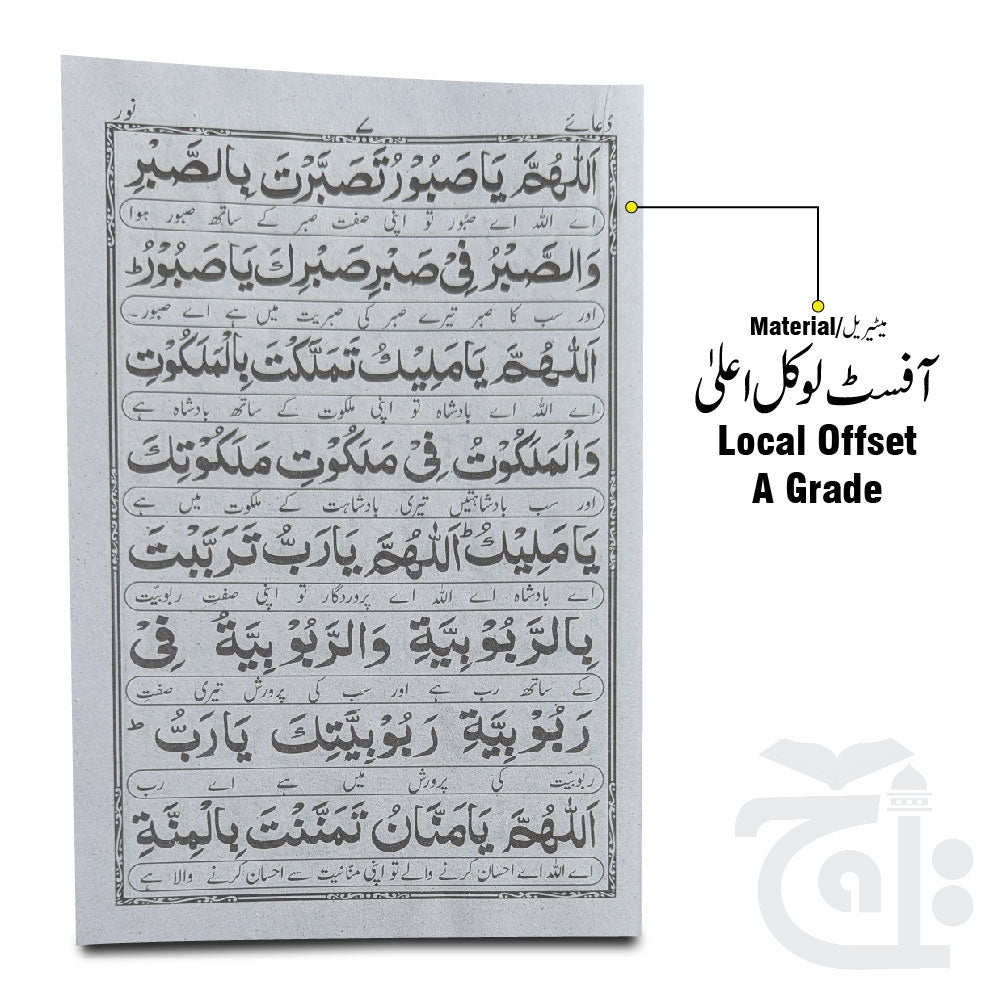 دُعائے ۷ نور
اَللّٰهُمَّ يَا صَبُوْرُ تَصَبَّرْتَ بِالصَّبْرِ
اے اللہ اے صبُور تو اپنی صفت صبر کے ساتھ صبور ہوا
وَالصَّبْرُ فِيْ صَبْرِ صَبْرِكَ يَا صَبُوْرُ ؕ
اور سب کا صبر تیرے صبر کی صبریت میں ہے اے صبور۔
اَللّٰهُمَّ يَا مَلِيْكُ تَمَلَّكْتَ بِالْمَلَكُوْتِ
اے اللہ اے بادشاہ تو اپنی ملکوت کے ساتھ بادشاہ ہے
وَالْمَلَكُوْتُ فِيْ مَلَكُوْتِ مَلَكُوْتِكَ
اور سب بادشاہتیں تیری بادشاہت کے ملکوت میں ہے
يَا مَلِيْكُ ؕ اَللّٰهُمَّ يَا رَبُّ تَرَبَّبْتَ
اے بادشاہ اے اللہ اے پروردگار تو اپنی صفتِ ربوبیّت
بِالرَّبُوْبِيَّةِ وَالرَّبُوْبِيَّةُ فِيْ
کے ساتھ رب ہے اور سب کی پرورش تیری صفتِ
رَبُوْبِيَّةِ رَبُوْبِيَّتِكَ يَا رَبُّ ؕ
ربوبیّت کی پرورش میں ہے اے رب
اَللّٰهُمَّ يَا مَنَّانُ تَمَنَّنْتَ بِالْمِنَّةِ
اے اللہ اے احسان کرنے والے تو اپنی منّانیت سے احسان کرنے والا ہے
Material/میٹیریل
آفسٹ لوکل اعلیٰ
Local Offset
A Grade